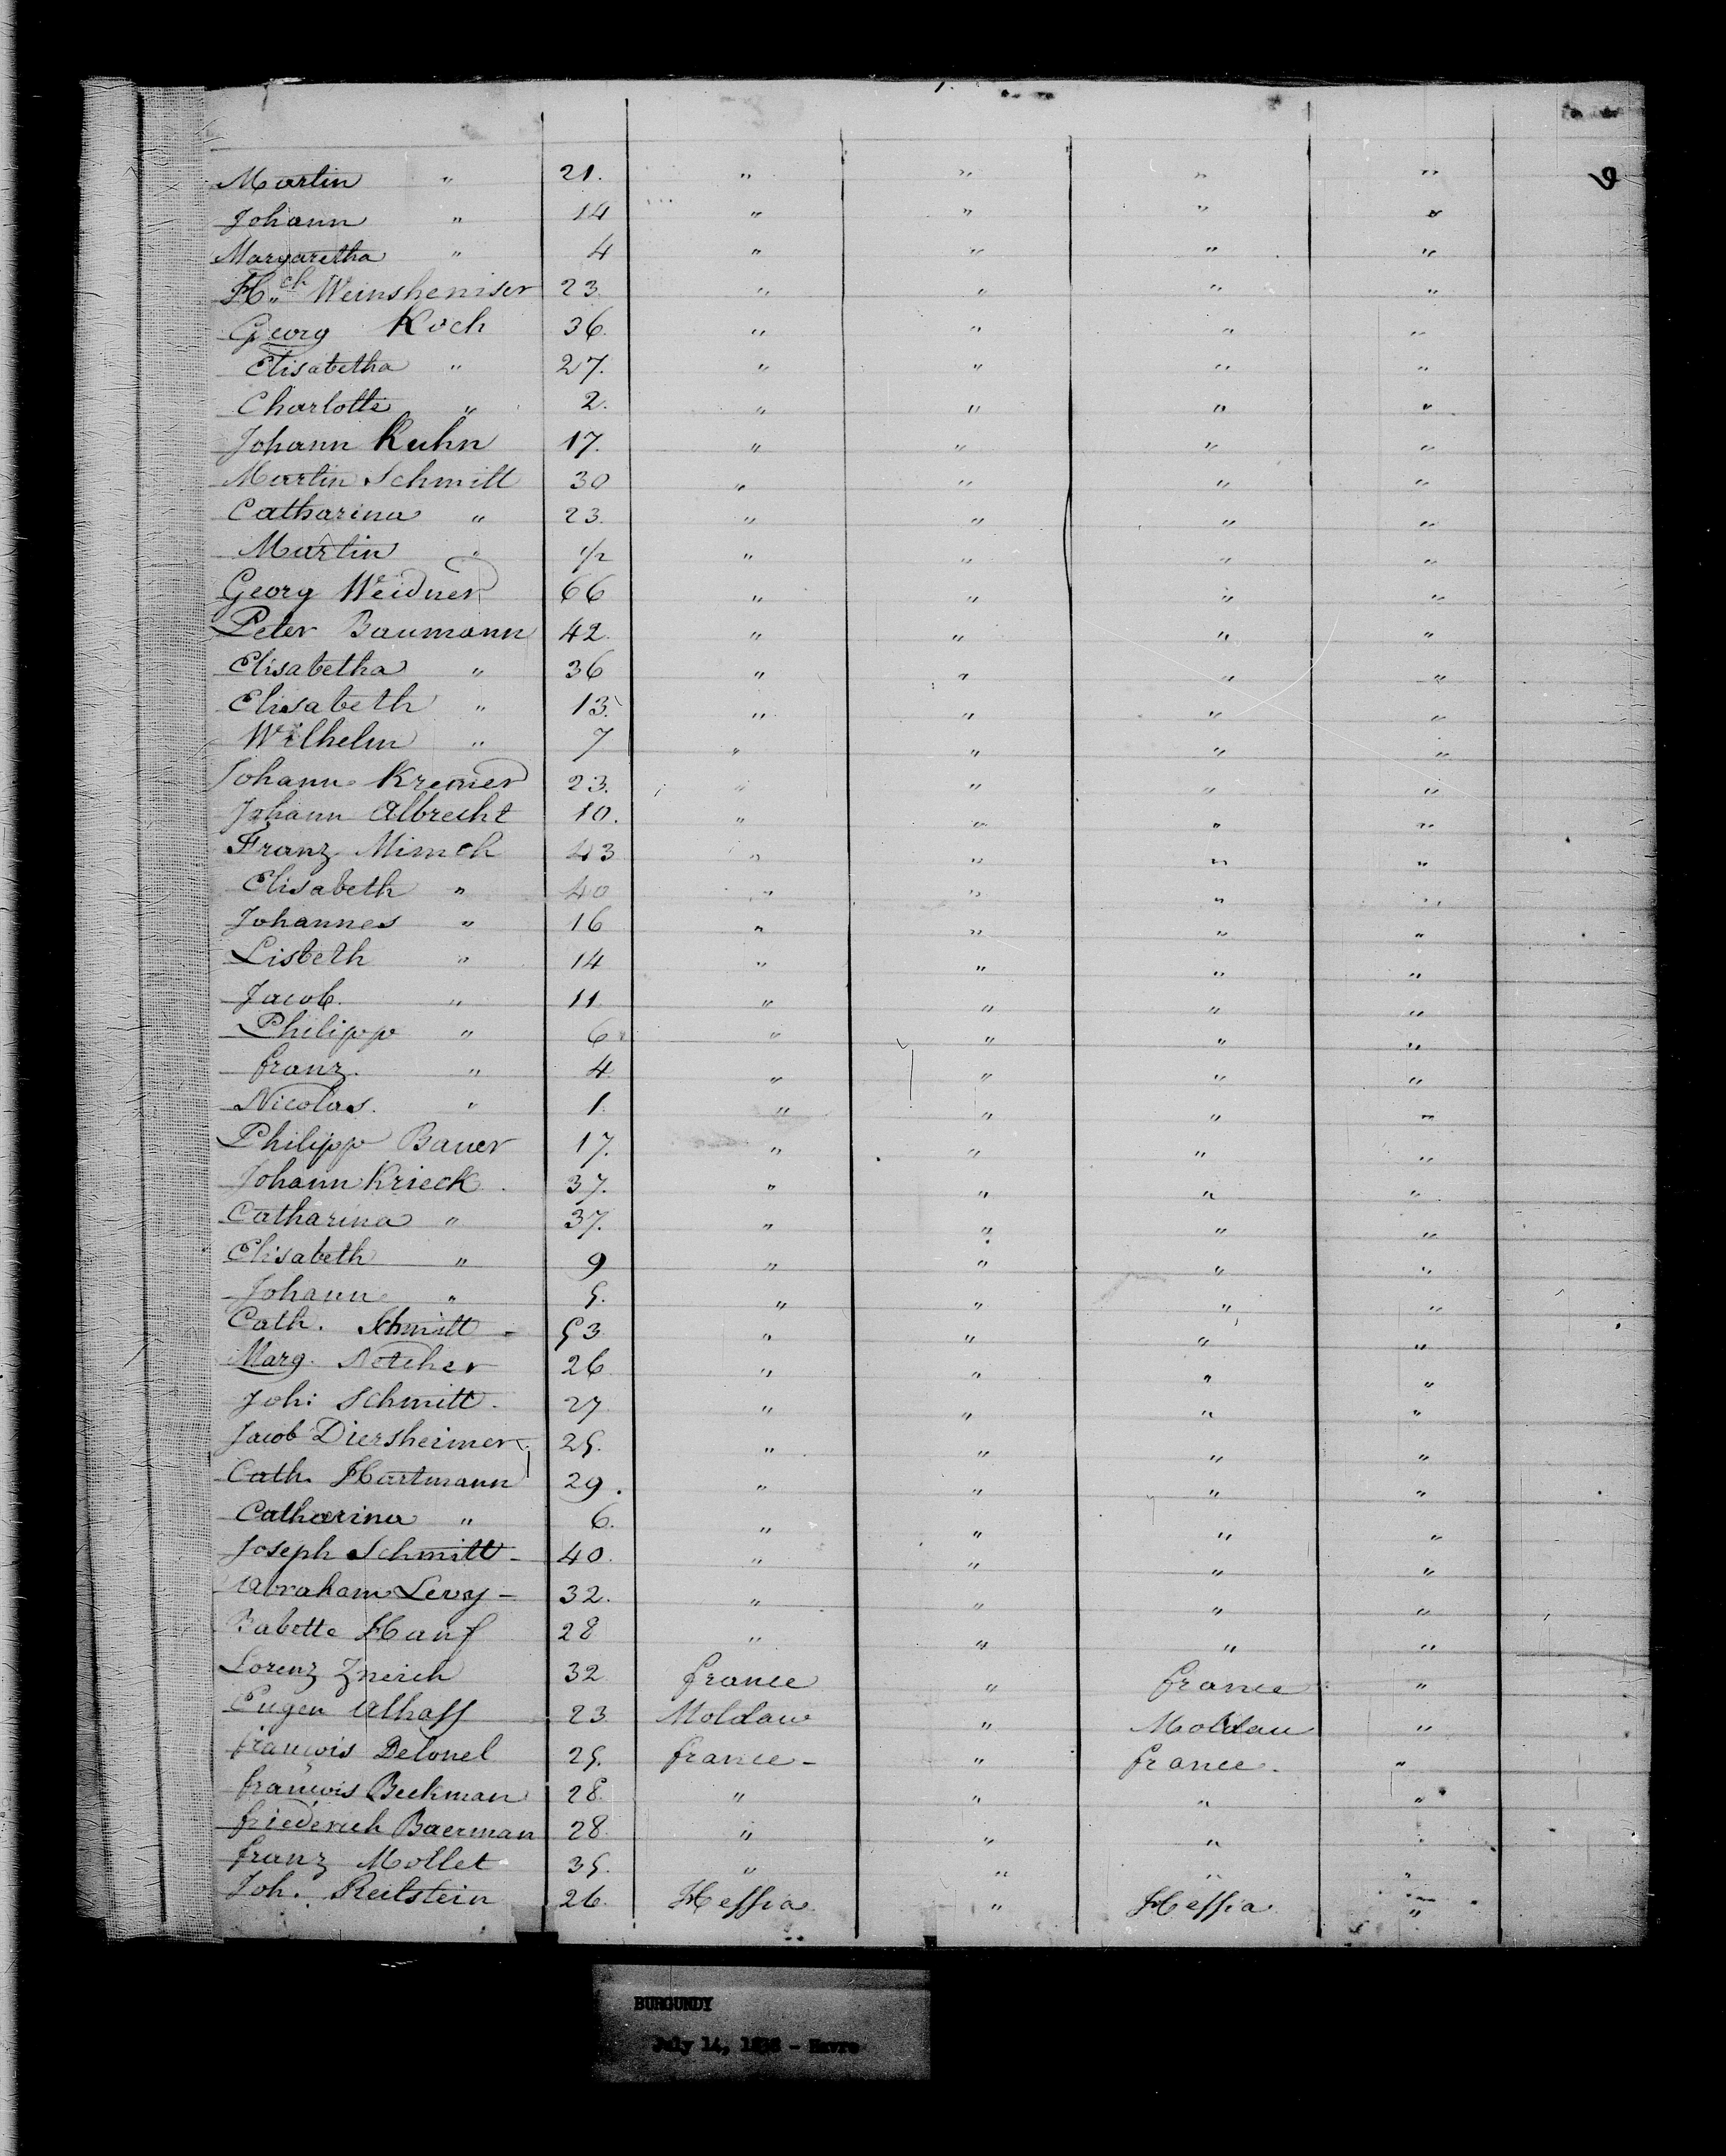 Martin " 21. " " " "
Johann " 14 " " " "
Margaretha " 4 " " " "
H.ch Weinsheniser 23 " " " "
Georg Koch 36. " " " "
Elisabetha " 27. " " " "
Charlotte " 2. " " " "
Johann Kuhn 17. " " " "
Martin Schmitt 30 " " " "
Catharina " 23. " " " "
Martin " 1/2 " " " "
Georg Weidner 66 " " " "
Peter Baumann 42. " " " "
Elisabetha " 36 " " " "
Elisabeth " 13. " " " "
Wilhelm " 7 " " " "
Johann Kremer 23. " " " "
Johann Albrecht 10. " " " "
Franz Mimch 43 " " " "
Elisabeth " 40 " " " "
Johannes " 16 " " " "
Lisbeth " 14 " " " "
Jacob. " 11. " " " "
Philipp " 6 " " " "
franz. " 4. " " " "
Nicolas. " 1. " " " "
Philipp Bauer 17. " " " "
Johann Krieck. 37. " " " "
Catharina " 37. " " " "
Elisabeth " 9 " " " "
Johann " 5. " " " "
Cath. Schmitt - 53 " " " "
Marg. 26 " " " "
Joh: Schmitt. 27 " " " "
Jacob Diersheimer. 25. " " " "
Cath. Hartmann 29. " " " "
Catharina " 6. " " " "
Joseph Schmitt - 40. " " " "
Abraham Levy - 32. " " " "
Babette Hanf 28 " " " "
Lorenz 32 france " france "
Eugen Alhaff 23 Moldau " Moldau "
françois Delonel 25. france - " france. "
françois Beekman 28. " " " "
friederich Baerman 28. " " " "
franz Mollet 35. " " " "
Joh. Reilstein 26. Hessia " Hessia "
BURGUNDY
July 14, - Havre